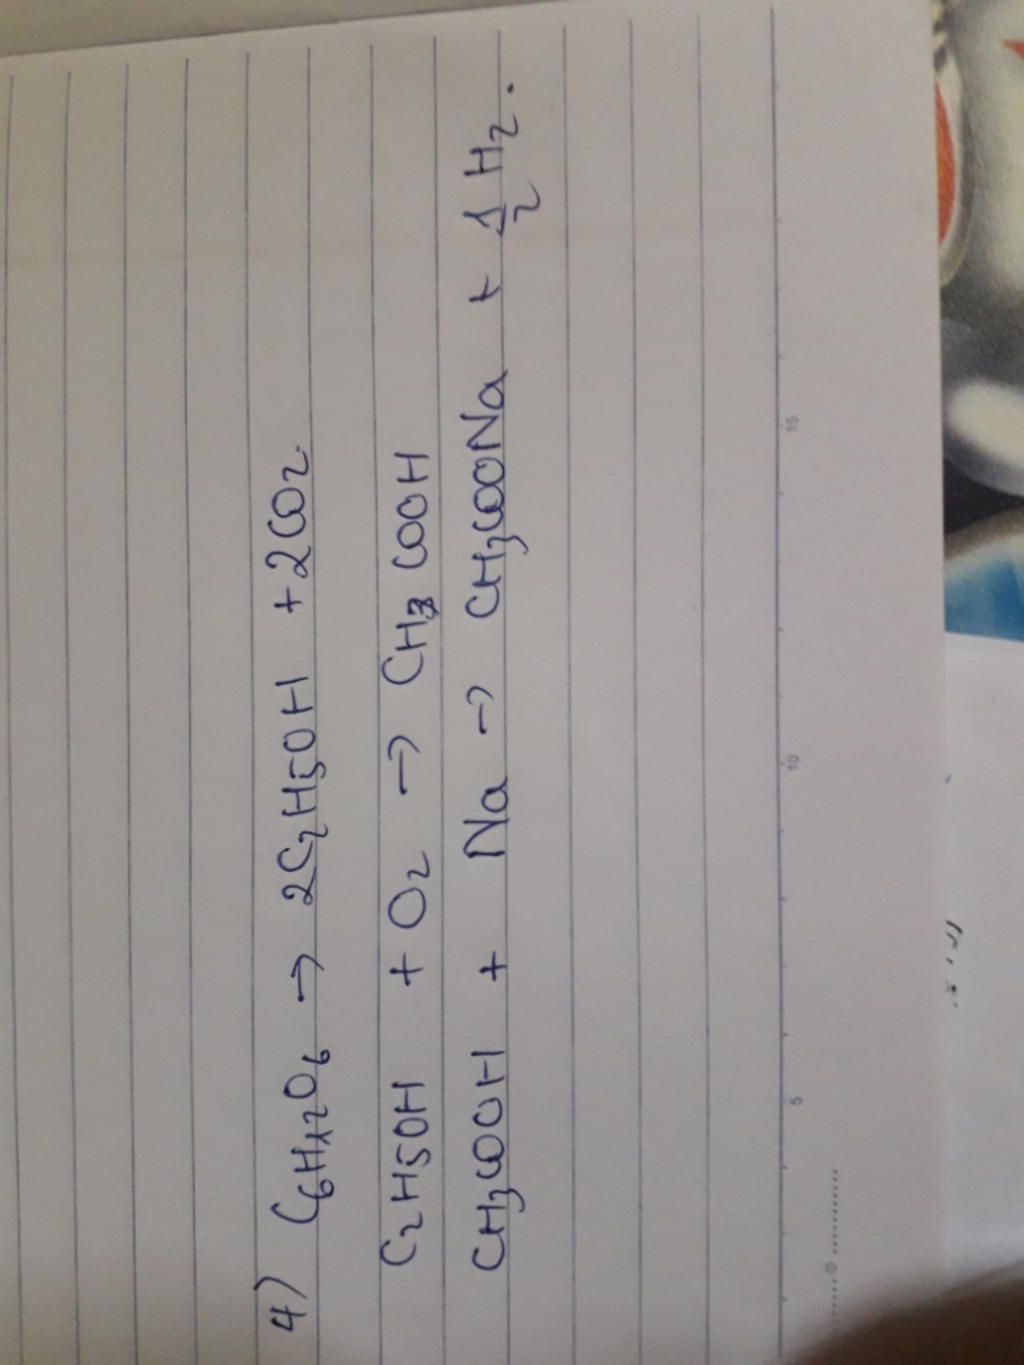 4) C6H12O6 → 2C2H5OH + 2CO2.
C2H5OH + O2 → CH3COOH
CH3COOH + Na → CH3COONa + 1/2 H2.
5 10 15